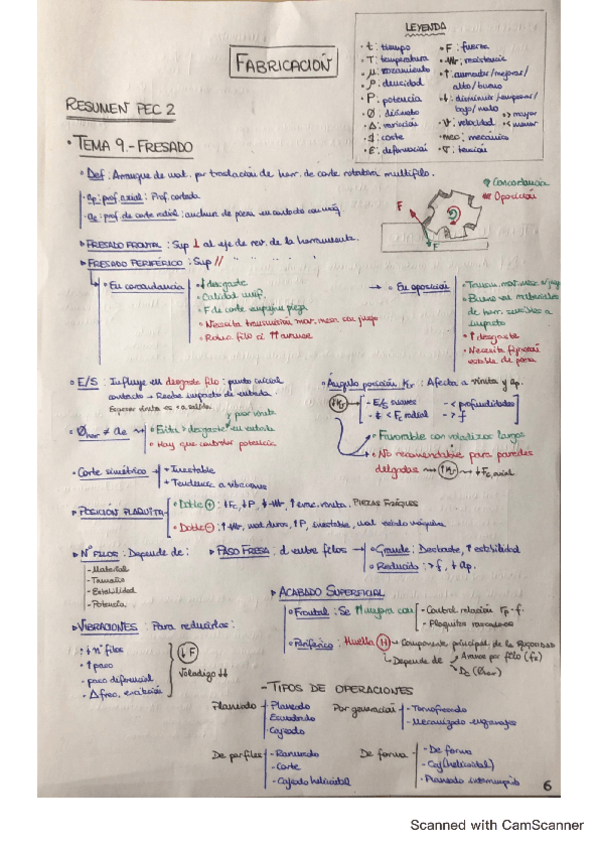 FABRICACIÓN
LEYENDA
· t: tiempo
· T: temperatura
· μ: rozamiento
· ρ: densidad
· P: potencia
· Ø: diámetro
· Δ: variación
· $: coste
· ε: deformación
· F: fuerza
· Mr: resistencia
· ↑: aumentar/mejorar/
alto/bueno
· ↓: disminuir/empeorar/
bajo/malo
· > mayor
· < menor
· v: velocidad
· mec: mecánica
· σ: tensión
RESUMEN PEC 2
· TEMA 9.- FRESADO
· Def: Arranque de mat. por traslación de herr. de corte rotatoria multifilo.
· ap: prof. axial: Prof. cortada
· ae: prof. de corte radial: anchura de pieza en contacto con
Concordancia
Oposición
F
F
FRESADO FRONTAL: Sup ⊥ al eje de rot. de la herramienta.
FRESADO PERIFÉRICO: Sup // " " " " "
· En concordancia
· ↓ desgaste
· Calidad unif.
· F de corte empujan pieza
· Necesita transmisión mov. mesa sin juego
· Rotura filo si ↑↑ avance
→ · En oposición
· Buena
de herr. sensibles a
impacto
· ↑ desgaste
· Necesita fijación
estable de pieza
· E/S: Influye en desgaste filo: punto inicial
contacto → Recibe impacto de viruta.
Espesor viruta es <a salida.
Ángulo posición Kr: Afecta a viruta y ap.
↓Kr
- E/S suaves
- < profundidades
- < Fc radial
- > f
· Favorable con voladizos largos
· NO recomendable para paredes
delgadas ↑Kr → ↓Fc, axial
· Øherr ≠ ae
· Evita > desgaste en entrada
y por viruta
· Hay que controlar potencia
· Corte simétrico
· Inestable
· Tendencia a vibraciones
POSICIÓN PLAQUITA
· Doble ⊕: ↓Fc, ↓P, ↑evac. viruta. PIEZAS FRÁGILES
· Doble ⊖: mat. duros, ↑P, inestable, mal estado máquina
Nº FILOS: Depende de:
- Material
- Tamaño
- Estabilidad
- Potencia
PASO FRESA: d entre filos
· Grande: Desbaste, ↑ estabilidad
· Reducido: > f, ↓ ap.
ACABADO SUPERFICIAL
· Frontal: Se mejora con
- Control relación rp - f.
- Plaquitas rascadoras
· Periférico: Huella (H)
Componente principal de la RUGOSIDAD
Depende de
Avance por filo (fz)
Dc (Øherr)
VIBRACIONES: Para reducirlas:
· ↓ nº filos
· ↑ paso
· paso diferencial
· Δ frec. excitación
↓F
Voladizo ↓↓
- TIPOS DE OPERACIONES
Planeado
- Planeado
Escuadrado
- Cajeado
Por generación
- Tornofresado
- Mecanizado engranajes
De perfiles
- Ranurado
- Corte
- Cajeado helicoidal
De forma
- De forma
- Caj (helicoidal)
- Planeado interrumpido
6
Scanned with CamScanner